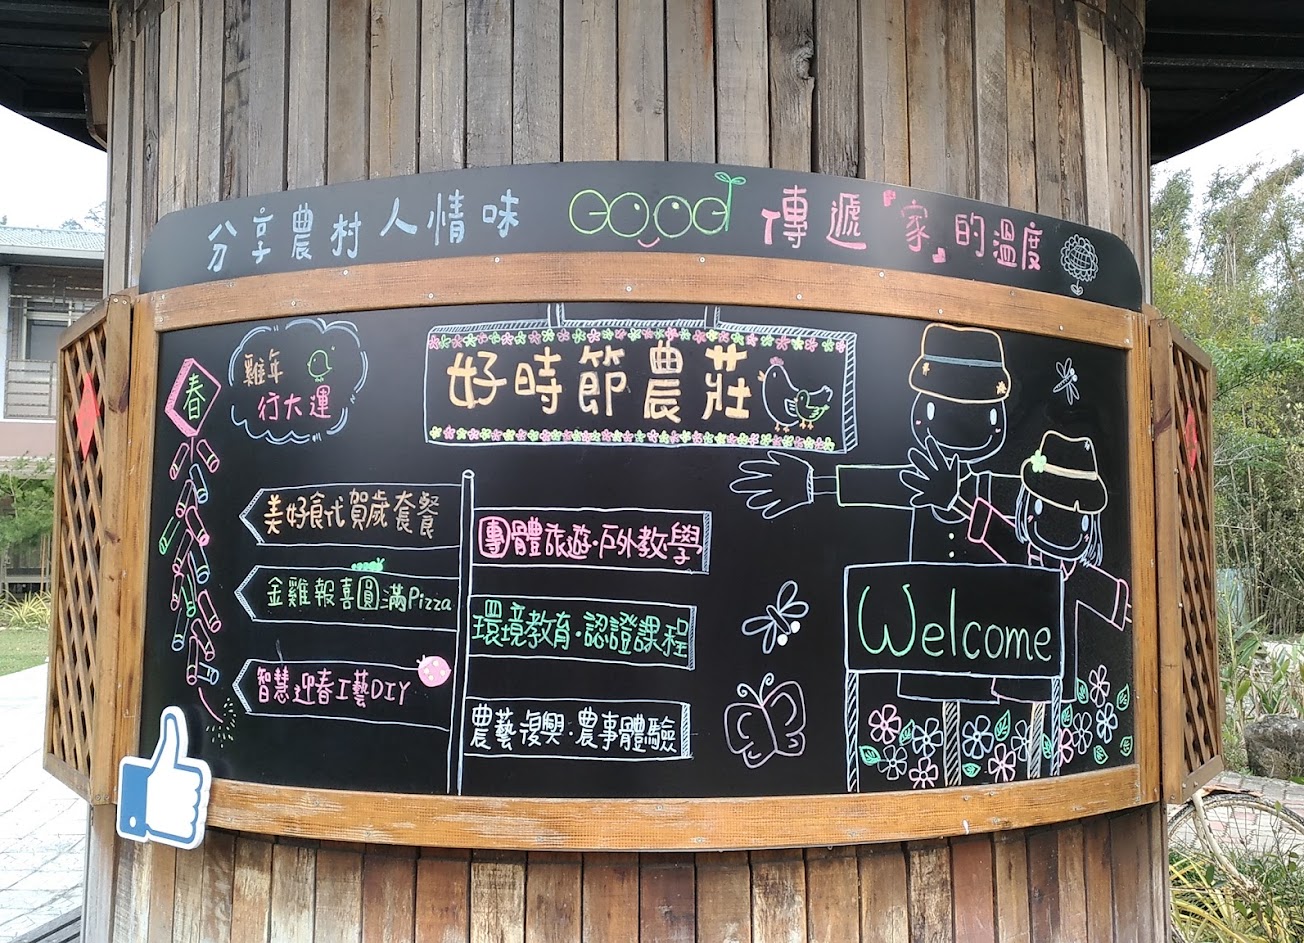 分享農村人情味 Good 傳遞『家』的溫度
春
雞年
行大運
好時節農莊
美好食代賀歲套餐
金雞報喜圓滿Pizza
智慧迎春工藝DIY
團體旅遊·戶外教學
環境教育·認證課程
農藝復興·農事體驗
Welcome